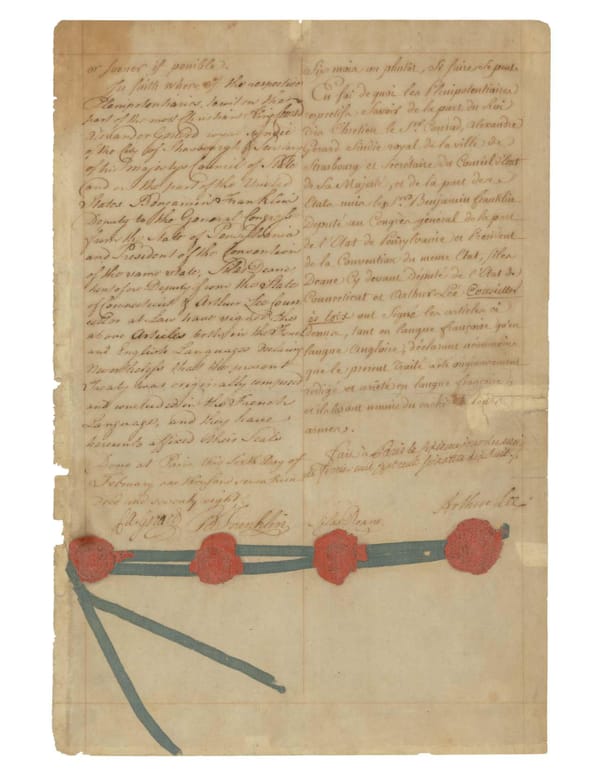 or sooner if possible.
In faith where of the respective
Plenipotentiaries, to wit on the
part of the most Christian King Conrad
Alexander Gerard royal Syndic
of the City of Strasbourgh & Secretary
of his Majestys Council of State
and on the part of the United
States Benjamin Franklin
Deputy to the General Congress
from the State of Pensylvania
and President of the Convention
of the same state, Silas Deane
heretofore Deputy from the State
of Connecticut & Arthur Lee Coun
cellor at Law have signed the
above Articles both in the French
and English Languages declaring
Nevertheless that the present
Treaty was originally composed
and concluded in the French
Language, and they have
hereunto affixed their Seals
Done at Paris this Sixth Day of
February one thousand seven hun
dred and seventy eight.
six mois ou plutôt, si faire se peut.
En foi de quoi les Plenipotentiaires
respectifs Savoir de la part du Roi
Très Chretien le Sr. Conrad, Alexandre
Gerard Sindic royal de la ville de
Strasbourg et Secretaire du Conseil d'Etat
de Sa Majesté, et de la part des
Etats unis les Srs. Benjamin Franklin
deputé au Congrès général de la part
de l'Etat de Pensylvanie et President
de la Convention du meme Etat, Silas
Deane Cy devant député de l'Etat de
Connecticut et Arthur Lee Conseiller
ès loix ont Signé les articles ci
dessus, tant en langue françoise qu'en
langue Angloise, declarant néanmoins
que le present Traité a été originairement
redigé et arrêté en langue françoise,
et ils les ont munis du cachet de leurs
armes.
Fait à Paris le sixieme jour du mois
de fevrier mil sept cent soixante dix huit.
C. A. Gerard B Franklin Silas Deane Arthur Lee